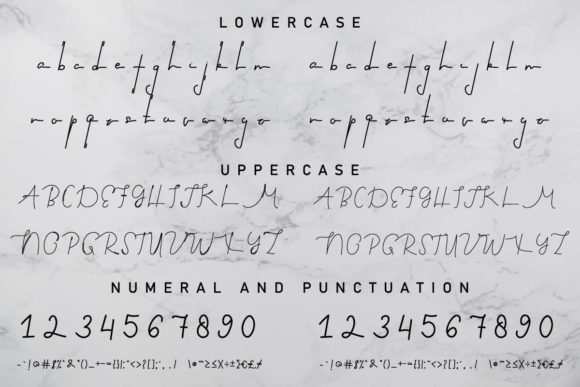 LOWERCASE
abcdefghijklm abcdefghijklm
nopqrstuvwxyz nopqrstuvwxyz
UPPERCASE
ABCDEFGHIJKLM ABCDEFGHIJKLM
NOPQRSTUVWXYZ NOPQRSTUVWXYZ
NUMERAL AND PUNCTUATION
1234567890 1234567890